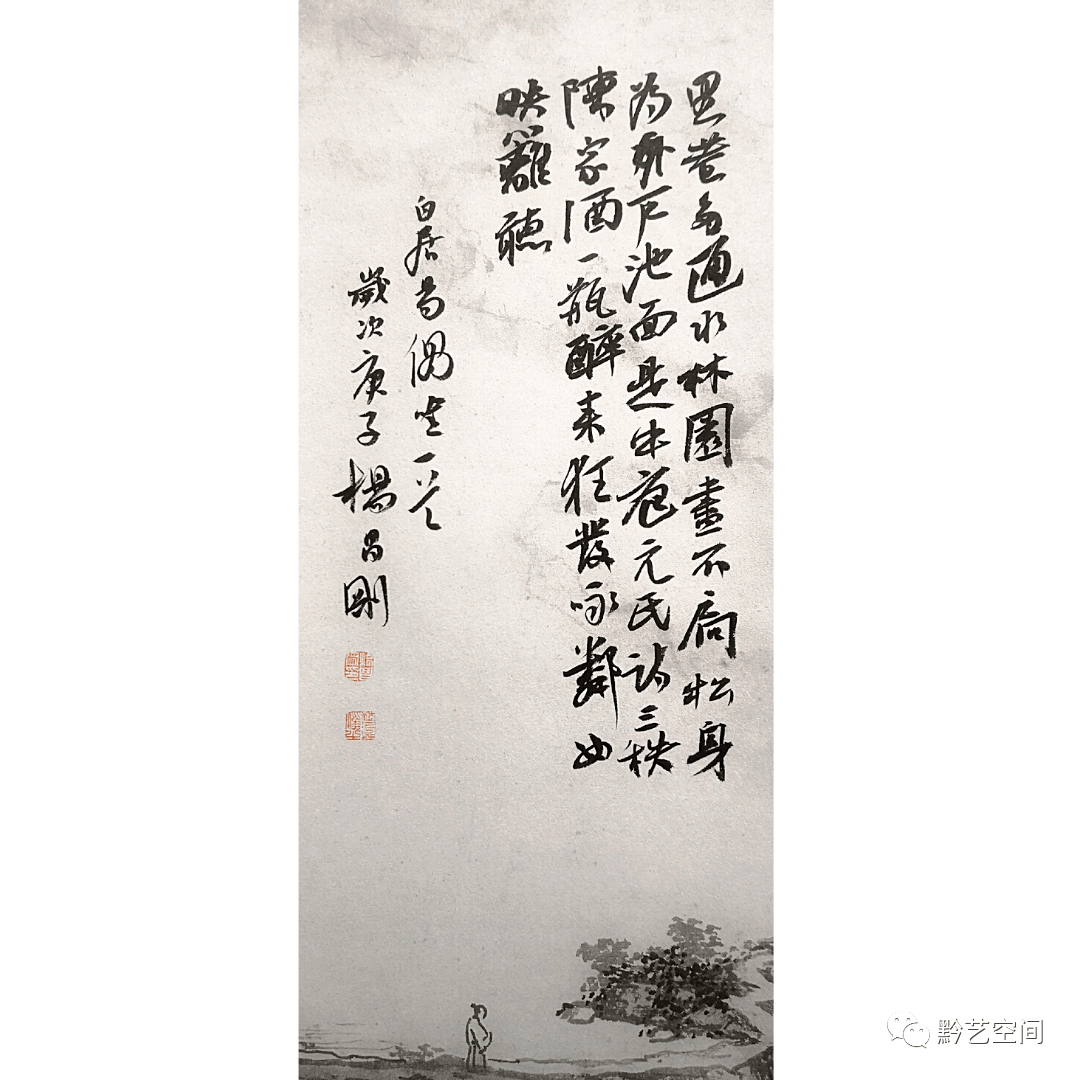 里巷多通水林園盡不扃松身
為外戶池面是中庭元氏詩三秩
陳家酒一瓶醉來狂發咏鄰女
映籬聽
白居易偶吟一首
歲次庚子楊昌剛
黔艺空间